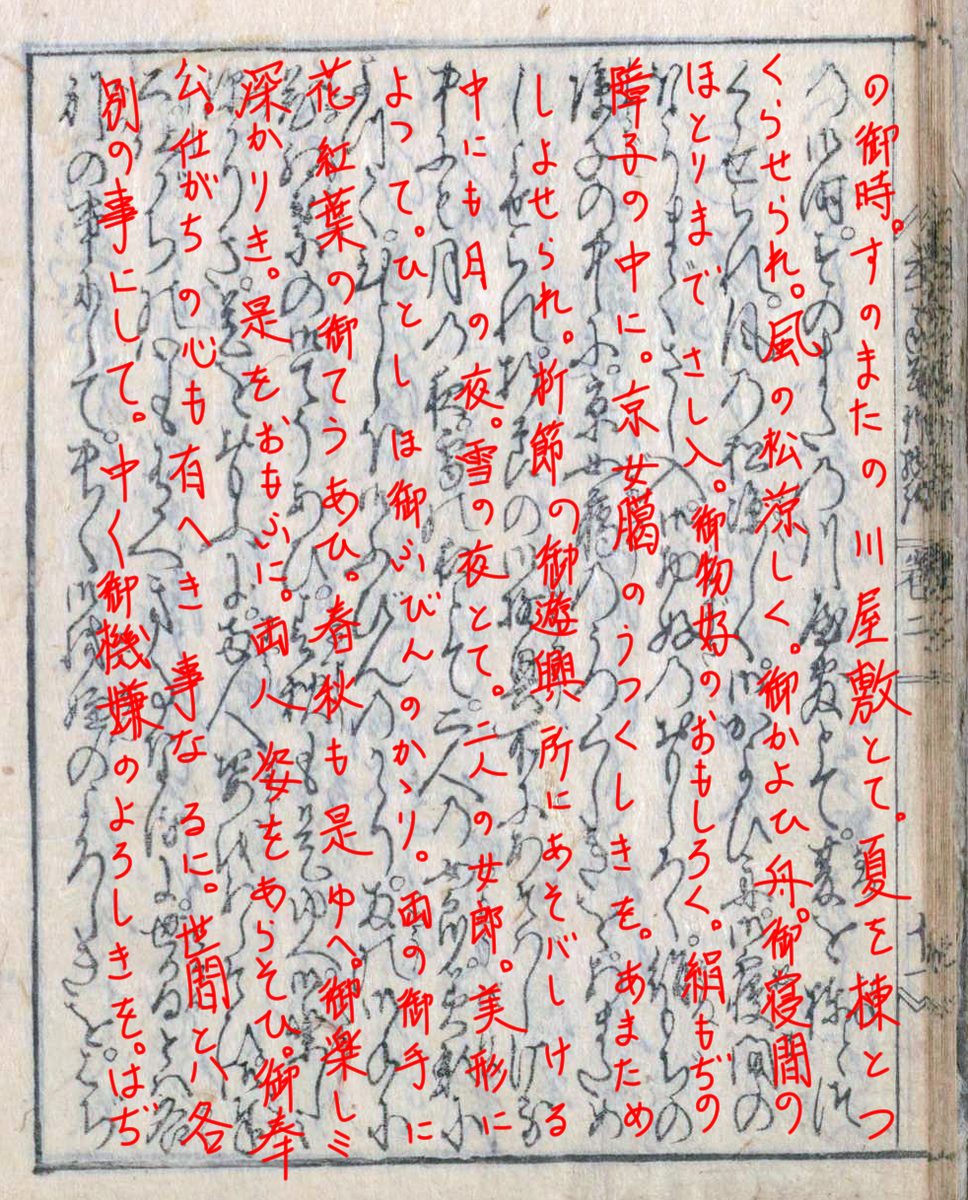 の御時。すのまたの川屋敷とて。夏を棟とつ
くらせられ。風の松涼しく。御かよひ舟。御寝間の
ほとりまでさし入。御物好のおもしろく。絹もぢの
障子の中に。京女臈のうつくしきを。あまため
しよせられ。折節の御遊興所にあそバしける
中にも月の夜。雪の夜とて。二人の女郎。美形に
よつて。ひとしほ御ふびんのかゝり。両の御手に
花紅葉の御てうあひ。春秋も是ゆへ。御楽しミ
深かりき。是をおもふに。両人姿をあらそひ。御奉
公。仕がちの心も有へき事なるに。世間とハ各
別の事にして。中く御機嫌のよろしきを。はぢ